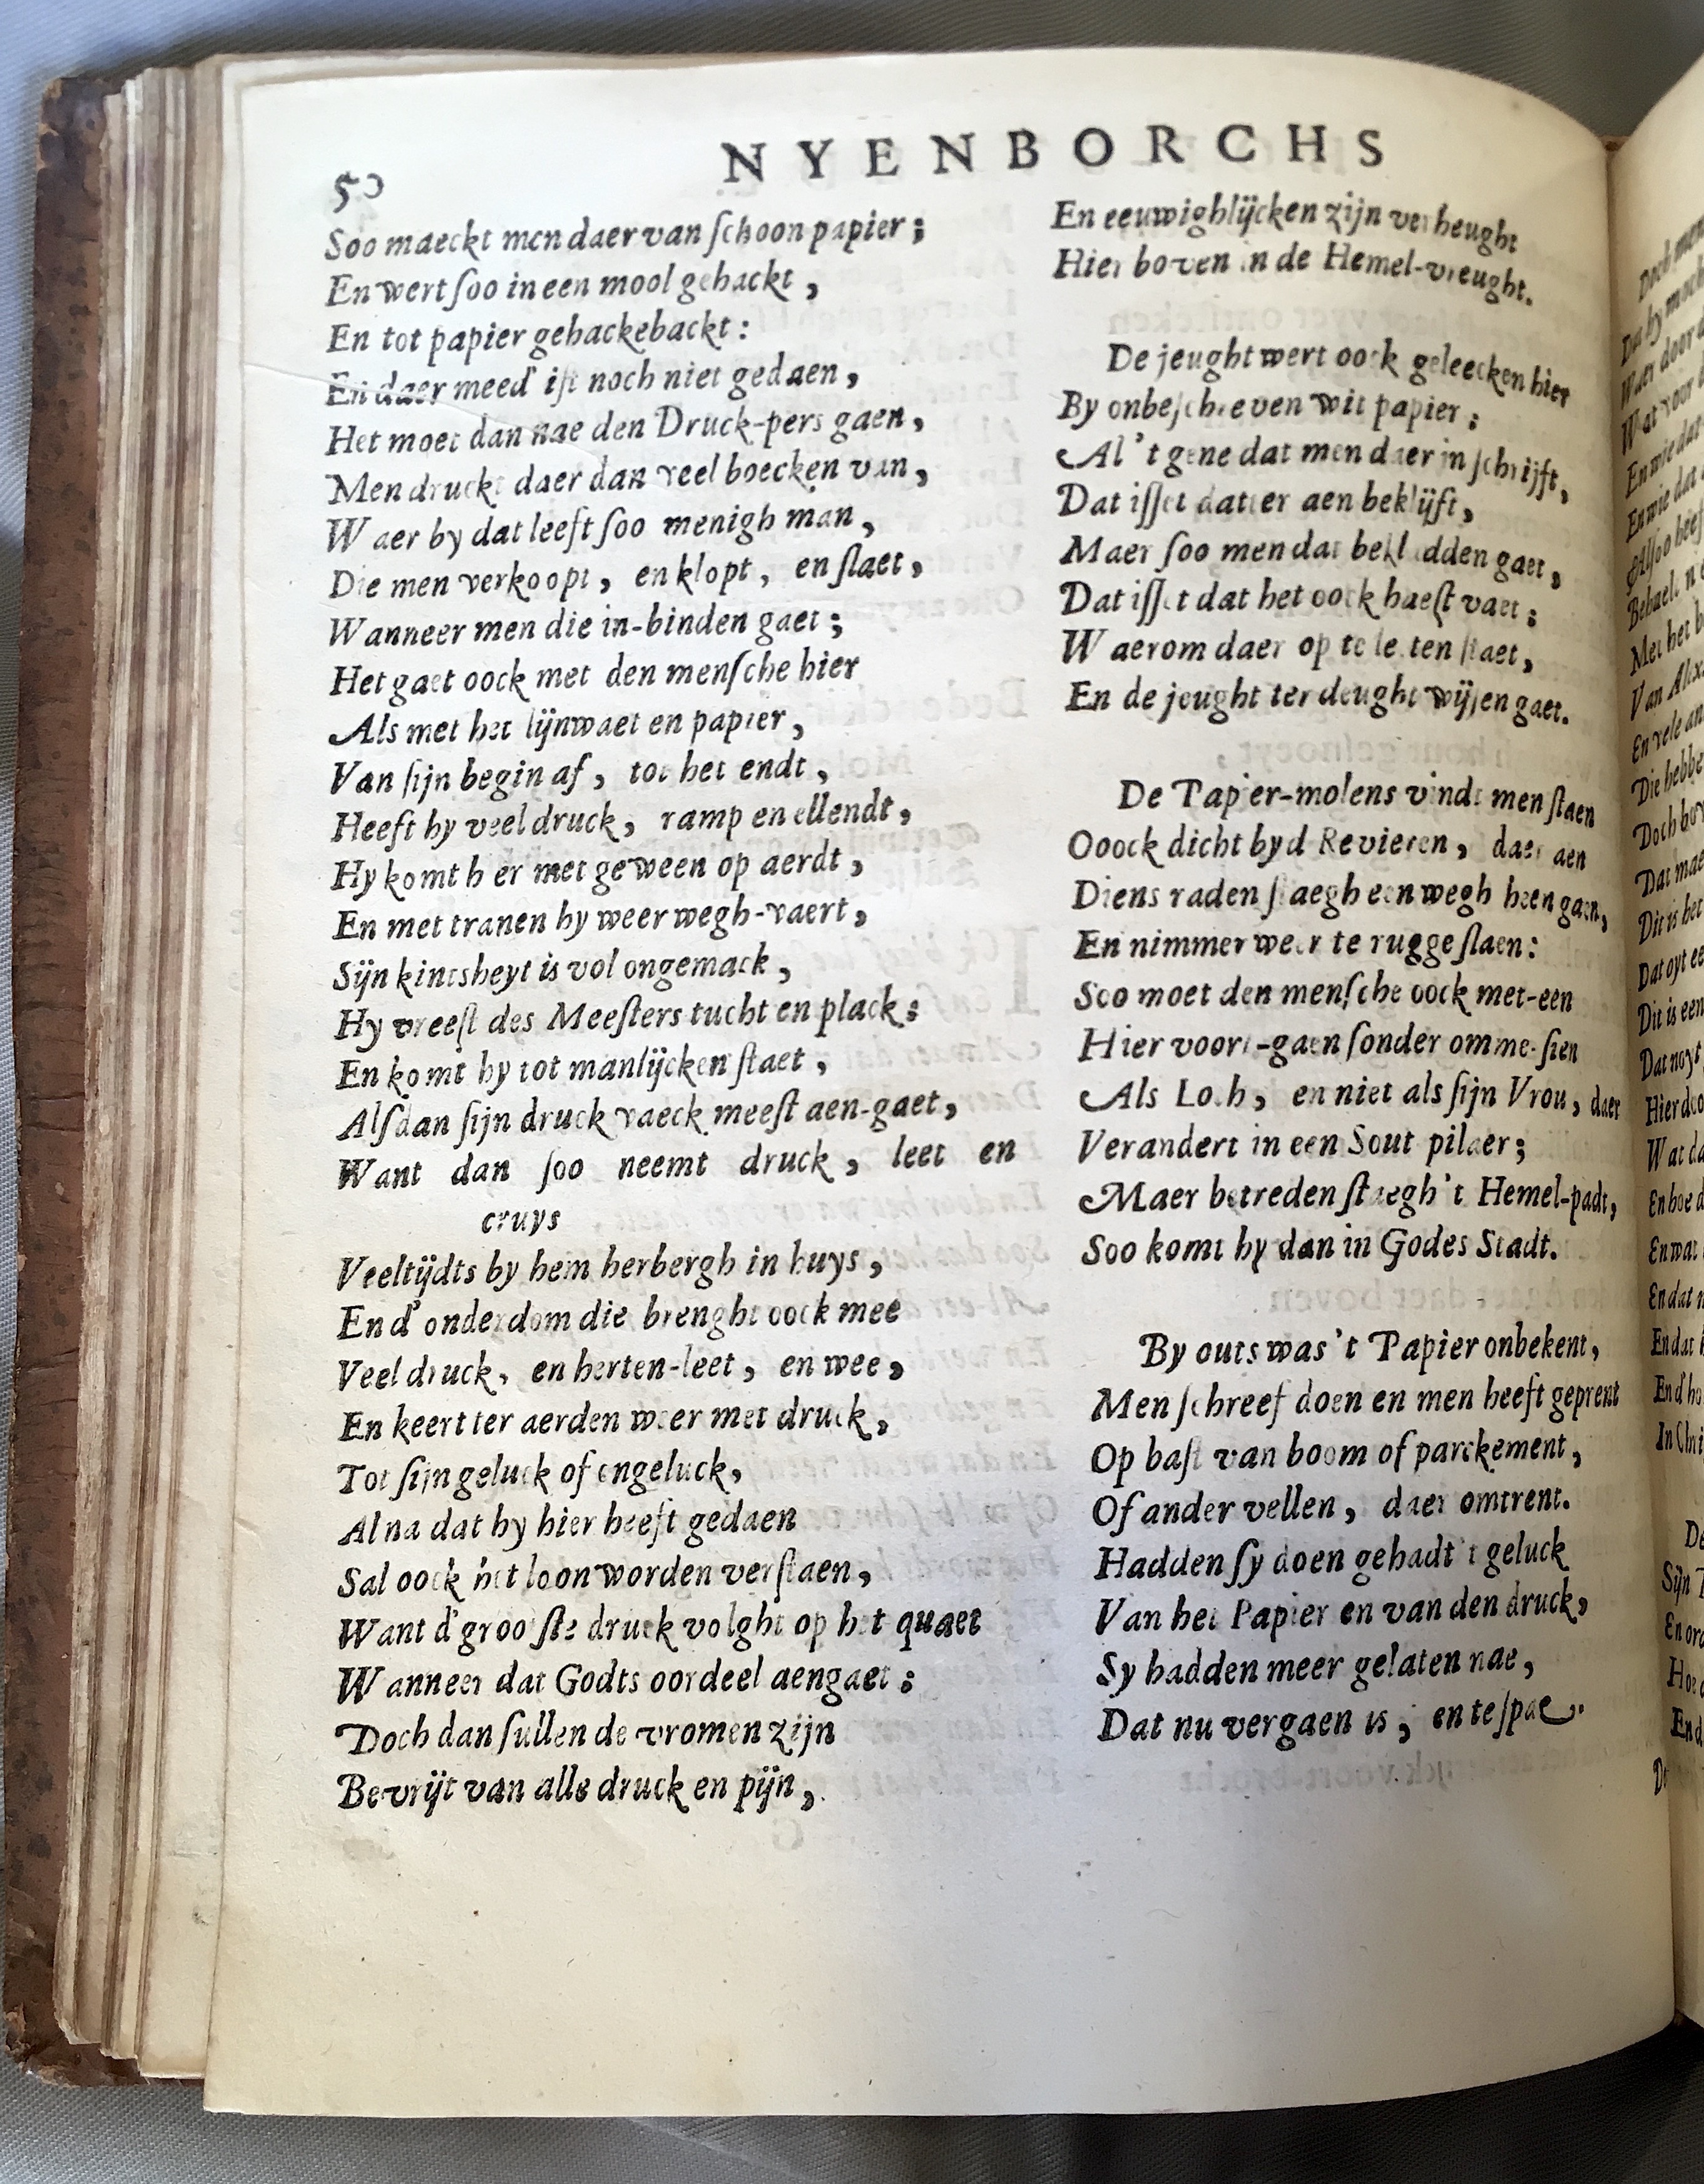 50
NYENBORCHS
Soo maeckt men daer van ſchoon papier;
En wert ſoo in een mool gehackt,
En tot papier gehackebackt:
En daer meed' iſt noch niet gedaen,
Het moet dan nae den Druck-pers gaen,
Men druckt daer dan veel boecken van,
Waer by dat leeft ſoo menigh man,
Die men verkoopt, en klopt, en ſlaet,
Wanneer men die in-binden gaet;
Het gaet oock met den menſche hier
Als met het lijnwaet en papier,
Van ſijn begin af, tot het endt,
Heeft hy veel druck, ramp en ellendt,
Hy komt h er met geween op aerdt,
En met tranen hy weer wegh-vaert,
Sijn kintsheyt is vol ongemack,
Hy vreeſt des Meeſters tucht en plack:
En komt hy tot manlijcken ſtaet,
Alſdan ſijn druck vaeck meeſt aen-gaet,
Want dan ſoo neemt druck, leet en
cruys
Veeltijdts by hem herbergh in huys,
En d' onderdom die brenght oock mee
Veel druck, en herten-leet, en wee,
En keert ter aerden weer met druck,
Tot ſijn geluck of ongeluck,
Al na dat hy hier heeft gedaen
Sal oock het loon worden verſtaen,
Want d' grooſte druck volght op het quaet
Wanneer dat Godts oordeel aengaet:
Doch dan ſullen de vromen zijn
Bevrijt van alle druck en pijn,
En eeuwighlijcken zijn verheught
Hier boven in de Hemel-vreught.
De jeught wert oock geleecken hier
By onbeſchreven wit papier:
Al 't gene dat men daer in ſchrijft,
Dat iſſet datter aen beklijft,
Maer ſoo men dat bekladden gaet,
Dat iſſet dat het oock haeſt vaet:
Waerom daer op te letten ſtaet,
En de jeught ter deught wijſen gaet.
De Papier-molens vindt men ſtaen
Ooock dicht by d Revieren, daer aen
Diens raden ſtaegh een wegh heen gaen,
En nimmer weer te rugge ſlaen:
Soo moet den menſche oock met-een
Hier voort-gaen ſonder omme-ſien
Als Loth, en niet als ſijn Vrou, daer
Verandert in een Sout pilaer;
Maer betreden ſtaegh 't Hemel-padt,
Soo komt hy dan in Godes Stadt.
By outs was 't Papier onbekent,
Men ſchreef doen en men heeft geprent
Op baſt van boom of parckement,
Of ander vellen, daer omtrent.
Hadden ſy doen gehadt 't geluck
Van het Papier en van den druck,
Sy hadden meer gelaten nae,
Dat nu vergaen is, en te ſpae.